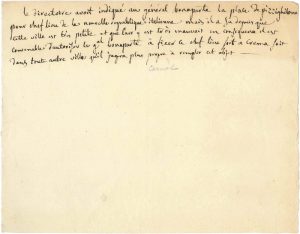 le Directoire avoit indiqué au général bonaparte la place de pizzighitone
pour chef lieu de la nouvelle république italienne. mais il a su depuis que
cette ville est très petite et que l'air y est très mauvais en conséquence il est
convenable d'autoriser le gal bonaparte à fixer le chef lieu soit à Crema, soit
dans toute autre ville qu'il jugera plus propre à remplir cet objet